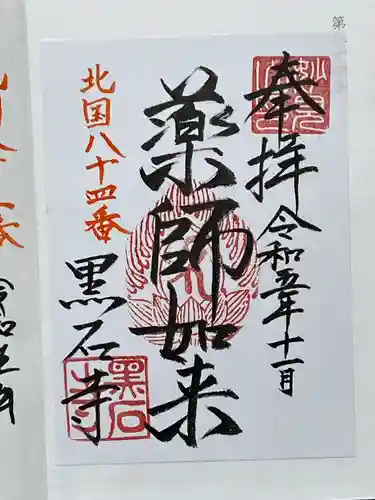 第
奉拝
令和五年十一月
薬師如来
北国八十四番
黒石寺
黒石寺
令和五年